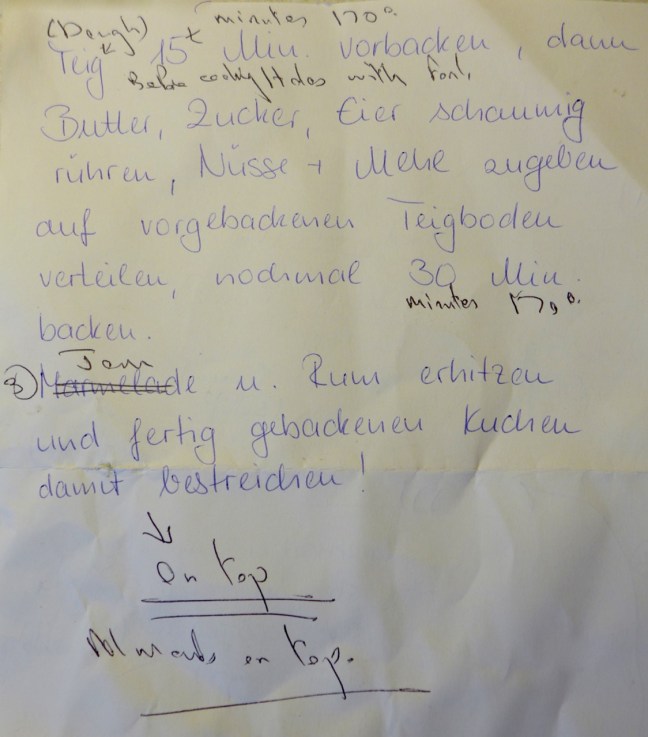 (Dough) minutes 170°
Teig 15 Min. vorbacken, dann
with
Butter, Zucker, Eier schaumig
rühren, Nüsse + Mehl zugeben
auf vorgebackenen Teigboden
verteilen, nochmal 30 Min.
minutes 170°.
backen.
Jam
Marmelade u. Rum erhitzen
und fertig gebackenen Kuchen
damit bestreichen!
On top
Almonds on top.